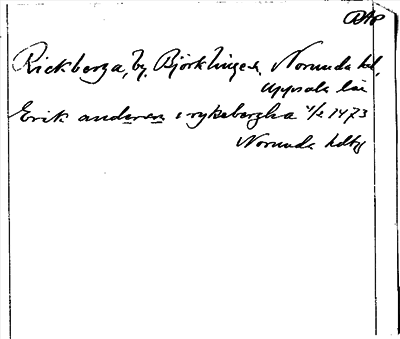 Rickberga, by, Björklinge s, Norunda hd,
Uppsala län
Erik andersen i rykebergha 4/2 1473
Norunda hdbg